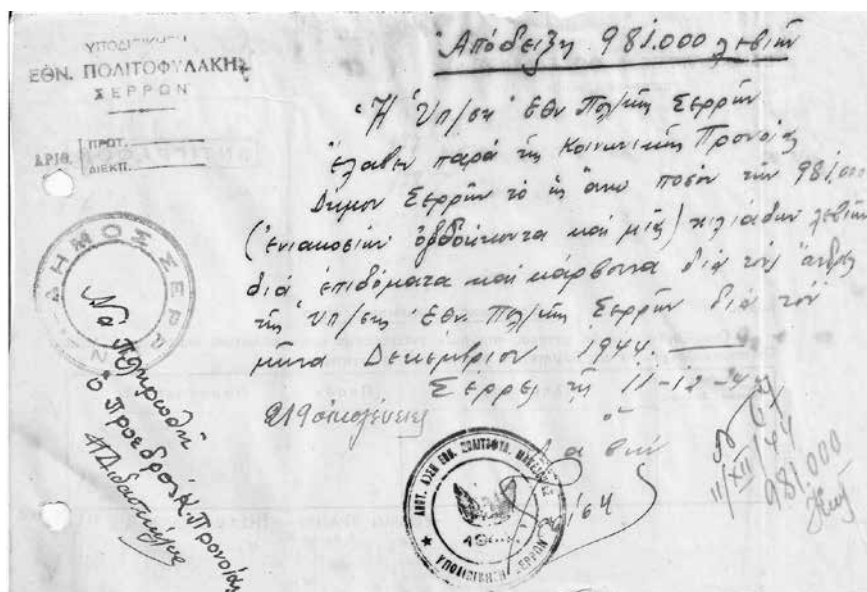 ΥΠΟΔΙΟΙΚΗΣΙΣ
ΕΘΝ. ΠΟΛΙΤΟΦΥΛΑΚΗΣ
ΣΕΡΡΩΝ
ΑΡΙΘ.
ΠΡΩΤ.
ΔΙΕΚΠ.
Ἀπόδειξη 981.000 λεβίων
Ἡ Ὑπ/σις Ἐθν Πολ/κης Σερρῶν
ἔλαβεν παρά της Κοινωνικῆς Προνοίας
Δήμου Σερρῶν τό ὡς ἄνω ποσόν τῶν 981.000
(ἐνιακοσίων ὀγδοήκοντα καί μιᾶς) χιλιάδων λεβίων
διά ἐπιδόματα καί κάρβουνα διά τούς ἄνδρας
τῆς Ὑπ/σης Ἐθν Πολ/κης Σερρῶν διά τόν
μῆνα Δεκέμβριον 1944.
Σέρρες τῇ 11-12-44
219 οἰκογένειες
ὁ
Λαβών
ΔΗΜΟΣ ΣΕΡΡΩΝ
Νά πληρωθῆ
Ὁ Πρόεδρος Κ. Προνοίας
ΥΠΟΔΙΟΙΚΗΣΗ ΣΕΡΡΩΝ
11/XII/44
981.000